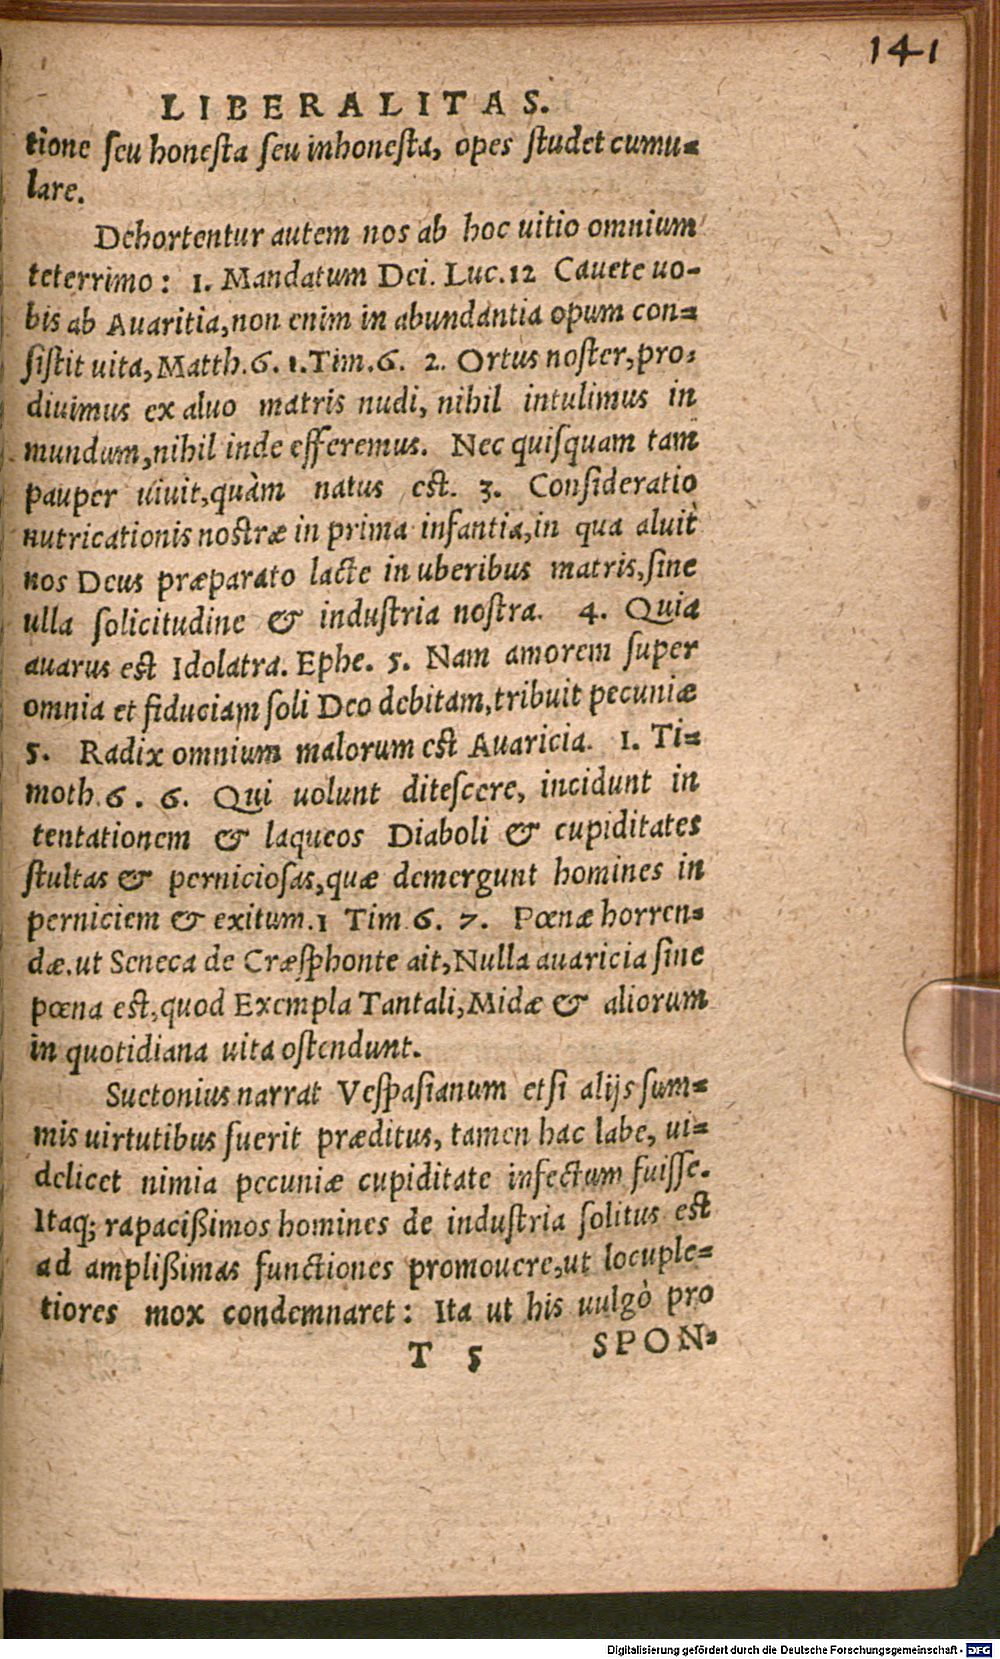 141
LIBERALITAS.
tione ſeu honeſta ſeu inhoneſta, opes ſtudet cumu-
lare.
Dehortentur autem nos ab hoc uitio omnium
teterrimo: 1. Mandatum Dei. Luc. 12 Cauete uo-
bis ab Auaritia, non enim in abundantia opum con-
ſiſtit uita, Matth. 6. 1. Tim. 6. 2. Ortus noſter, pro-
diuimus ex aluo matris nudi, nihil intulimus in
mundum, nihil inde efferemus. Nec quiſquam tam
pauper uiuit, quàm natus est. 3. Conſideratio
nutricationis nostræ in prima infantia, in qua aluit
nos Deus præparato lacte in uberibus matris, ſine
ulla ſolicitudine & induſtria noſtra. 4. Quia
auarus est Idolatra. Ephe. 5. Nam amorem ſuper
omnia et fiduciam ſoli Deo debitam, tribuit pecuniæ
5. Radix omnium malorum est Auaricia. 1. Ti-
moth. 6. 6. Qui uolunt diteſcere, incidunt in
tentationem & laqueos Diaboli & cupiditates
ſtultas & pernicioſas, quæ demergunt homines in
perniciem & exitum. 1 Tim. 6. 7. Pœnæ horren-
dæ. ut Seneca de Cræſphonte ait, Nulla auaricia ſine
pœna est, quod Exempla Tantali, Midæ & aliorum
in quotidiana uita oſtendunt.
Suetonius narrat Veſpaſianum etſi alijs ſum-
mis uirtutibus fuerit præditus, tamen hac labe, ui-
delicet nimia pecuniæ cupiditate infectum fuiſſe.
Itaq; rapacißimos homines de induſtria ſolitus est
ad amplißimas functiones promouere, ut locuple-
tiores mox condemnaret: Ita ut his uulgò pro
T 5 SPON-
Digitalisierung gefördert durch die Deutsche Forschungsgemeinschaft - DFG